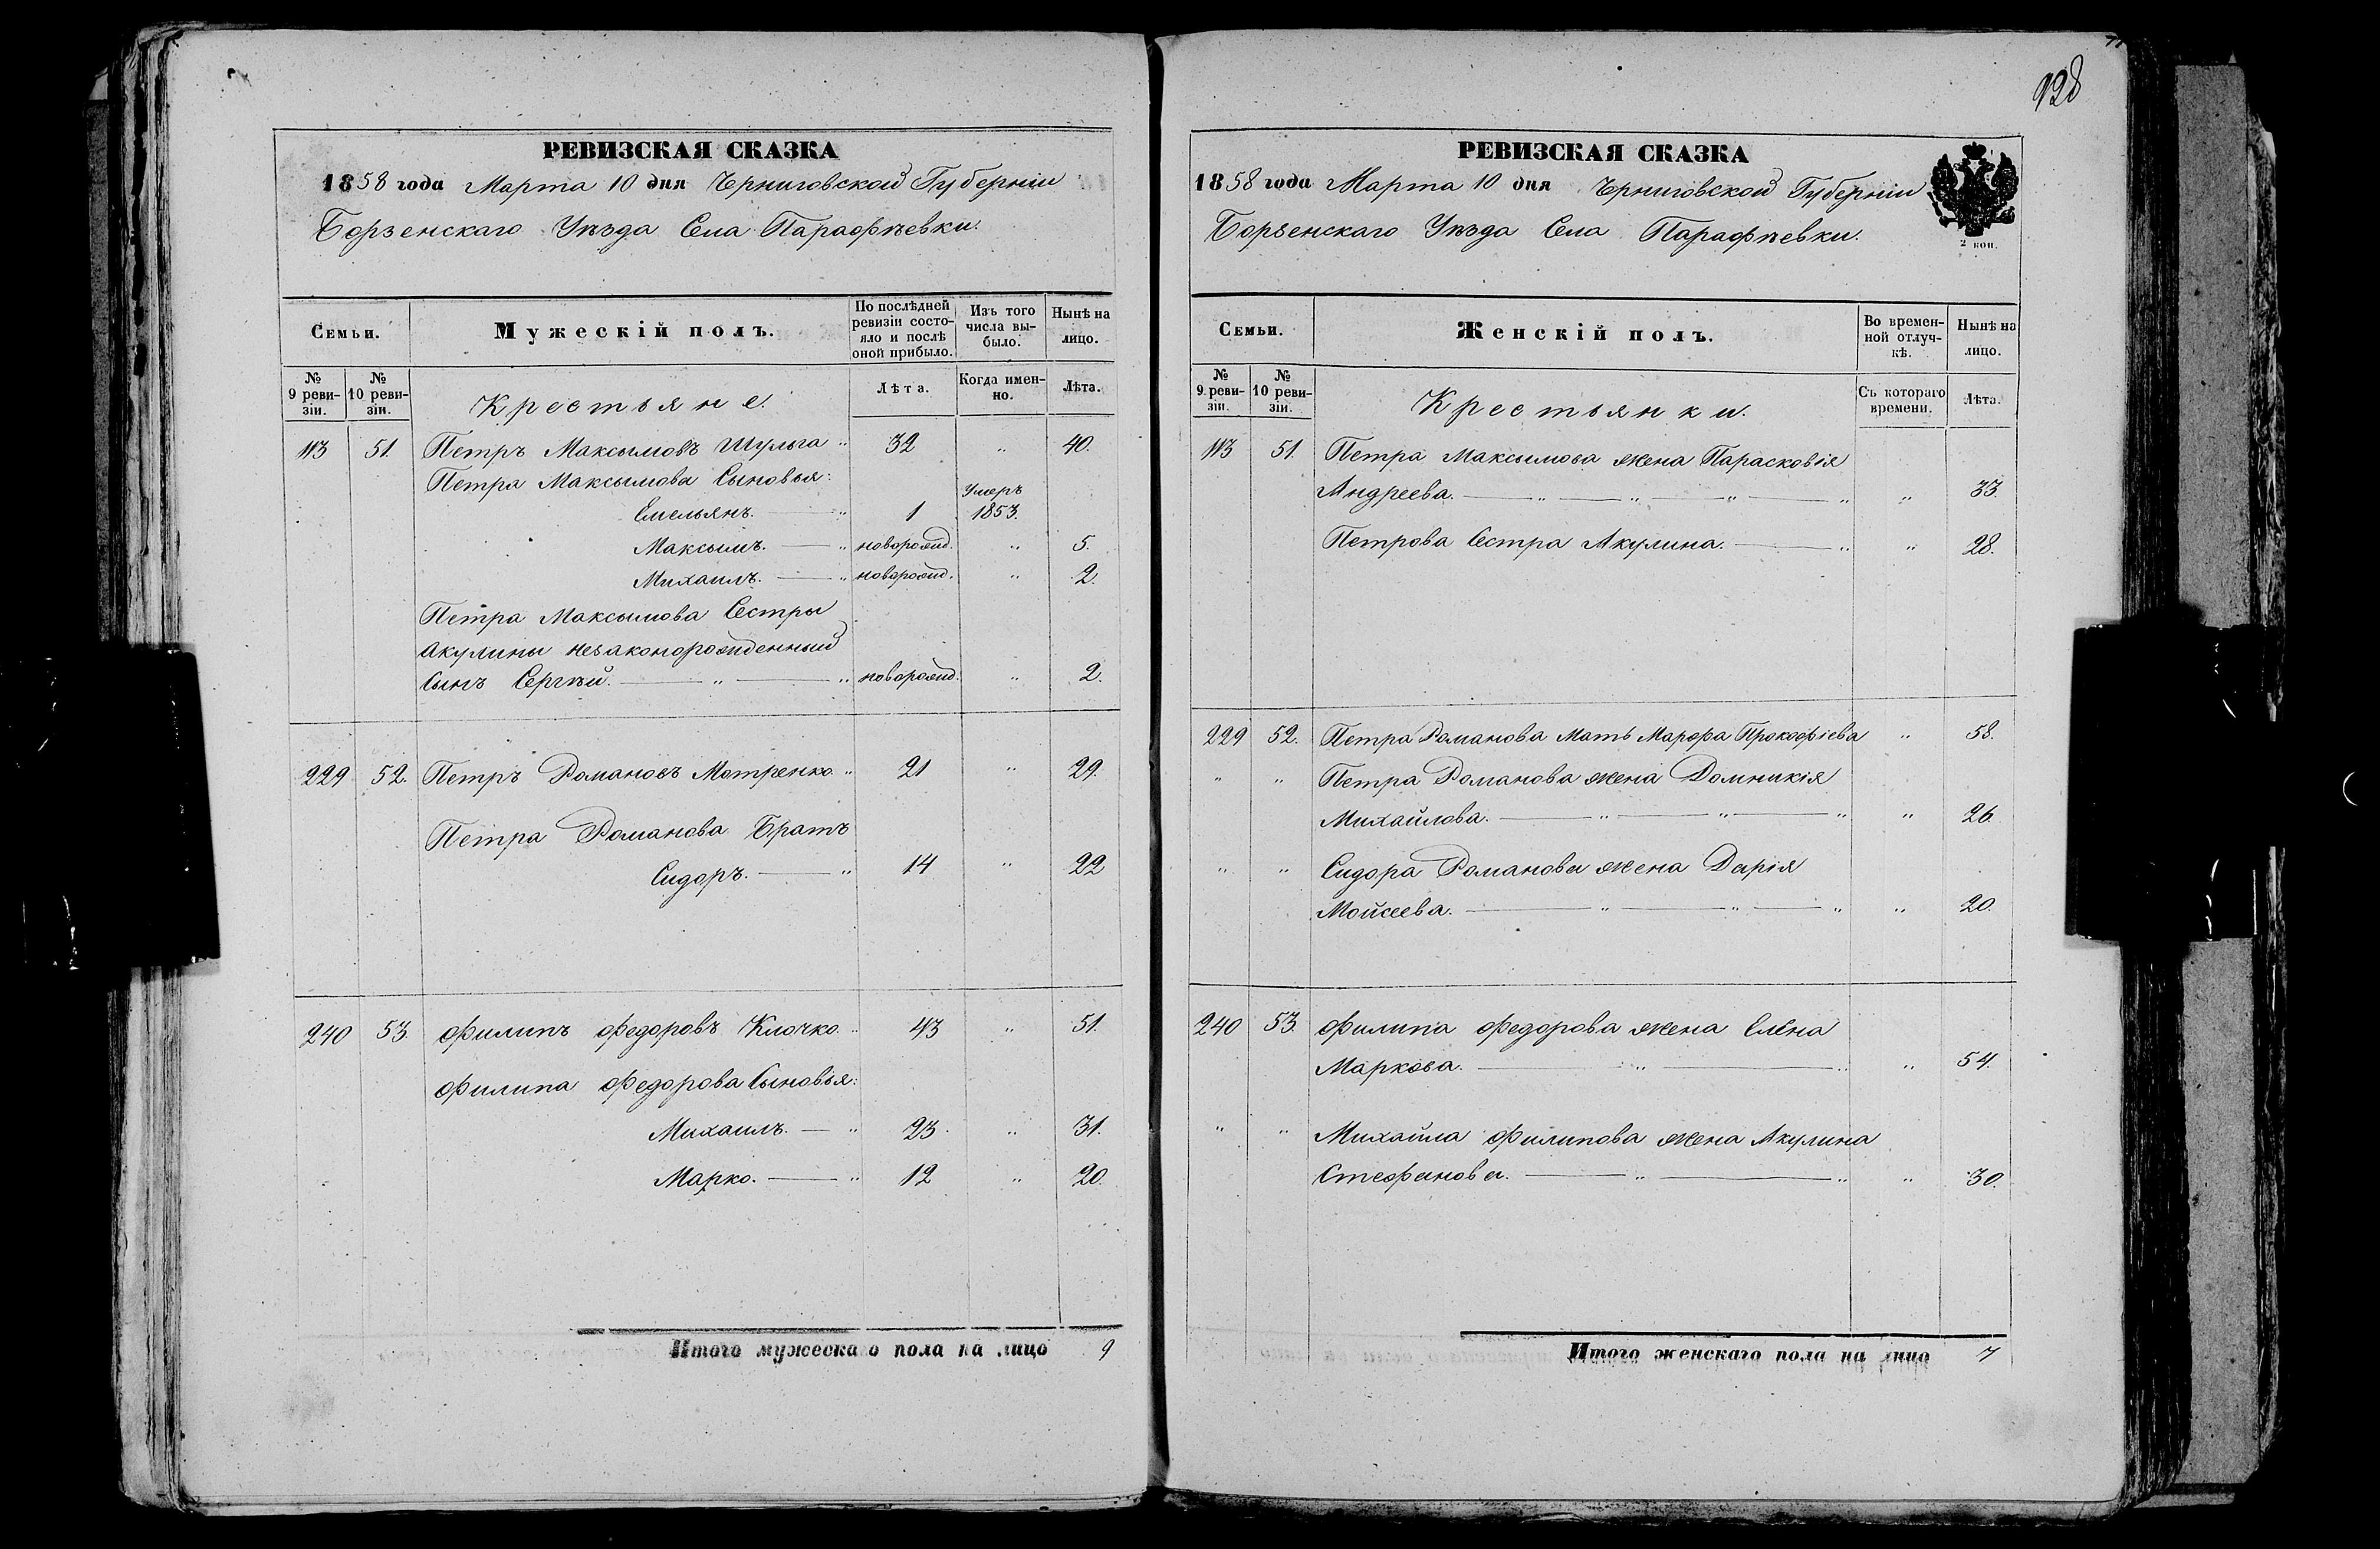 РЕВИЗСКАЯ СКАЗКА
1858 года Марта 10 дня Черниговской Губерніи
Борзенскаго Уѣзда Села Парафѣевки.
Семьи.
Мужескій полъ.
По послѣдней ревизіи состояло и послѣ оной прибыло.
Изъ того числа выбыло.
Нынѣ на лицо.
№ 9 ревизіи.
№ 10 ревизіи.
Крестьяне.
Лѣта.
Когда именно.
Лѣта.
113 51. Петръ Максымовъ Шульга „ 32 „ 40.
Петра Максымова Сыновья:
Емельянъ. „ 1 Умеръ 1853.
Максымъ. „ новорожд. „ 5.
Михаилъ. „ новорожд. „ 2.
Петра Максымова Сестры
Акулины незаконорожденный
Сынъ Сергѣй. „ „ новорожд. „ 2.
229 52. Петръ Романовъ Мотренко „ 21 „ 29.
Петра Романова Братъ
Сидоръ. „ 14 „ 22
240 53. Филипъ Федоровъ Клочко „ 43 „ 51.
Филипа Федорова Сыновья:
Михаилъ. „ 23 „ 31.
Марко. „ 12 „ 20.
Итого мужеска о пола на лицо 9
128
РЕВИЗСКАЯ СКАЗКА
1858 года Марта 10 дня Черниговской Губерніи
Борзенскаго Уѣзда Села Парафѣевки.
2 коп.
Семьи.
Женскій полъ.
Во временной отлучкѣ.
Нынѣ на лицо.
№ 9 ревизіи.
№ 10 ревизіи.
Крестьянки.
Съ котораго времени.
Лѣта.
113 51. Петра Максымова жена Парасковія
Андреева. „ „ „ „ „ 33.
Петрова Сестра Акулина. „ „ 28.
229 52. Петра Романова Мать Марфа Прокофіева „ 58.
„ „ Петра Романова жена Домникія
Михайлова. „ „ „ „ 26.
„ „ Сидора Романова жена Дарія
Мойсеева. „ „ „ „ 20.
240 53. Филипа Федорова жена Елена
Маркова. „ „ „ 54.
„ „ Михайла Филипова жена Акулина
Стефанова. „ „ „ 30.
Итого женскаго пола на лицо 7